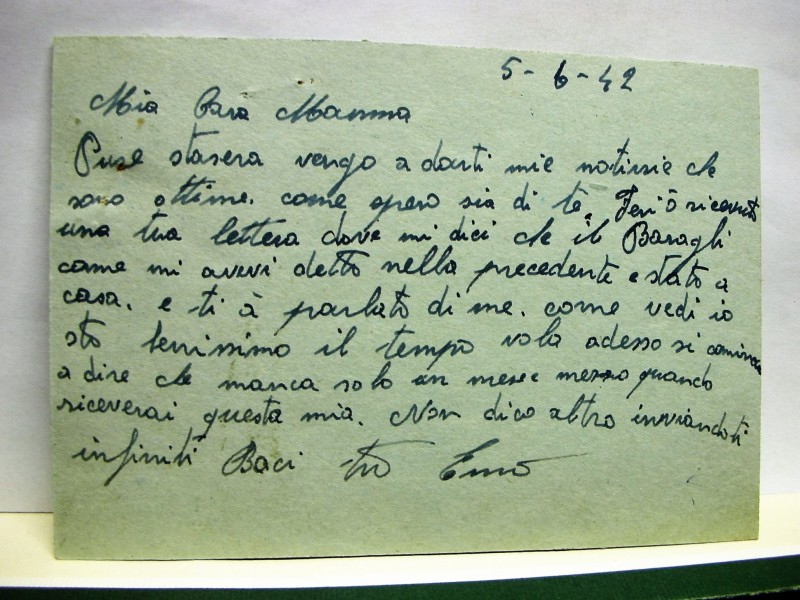 5-6-42
Mia Cara Mamma
Pure stasera vengo a darti mie notizie che
sono ottime. come spero sia di te. Ieri ò ricevuto
una tua lettera dove mi dici che il Baragli
come mi avevi detto nella precedente e stato a
casa. e ti à parlato di me. come vedi io
sto benissimo il tempo vola adesso si comincia
a dire che manca solo un mese e mezzo quando
riceverai questa mia. Non dico altro inviandoti
infiniti Baci tuo